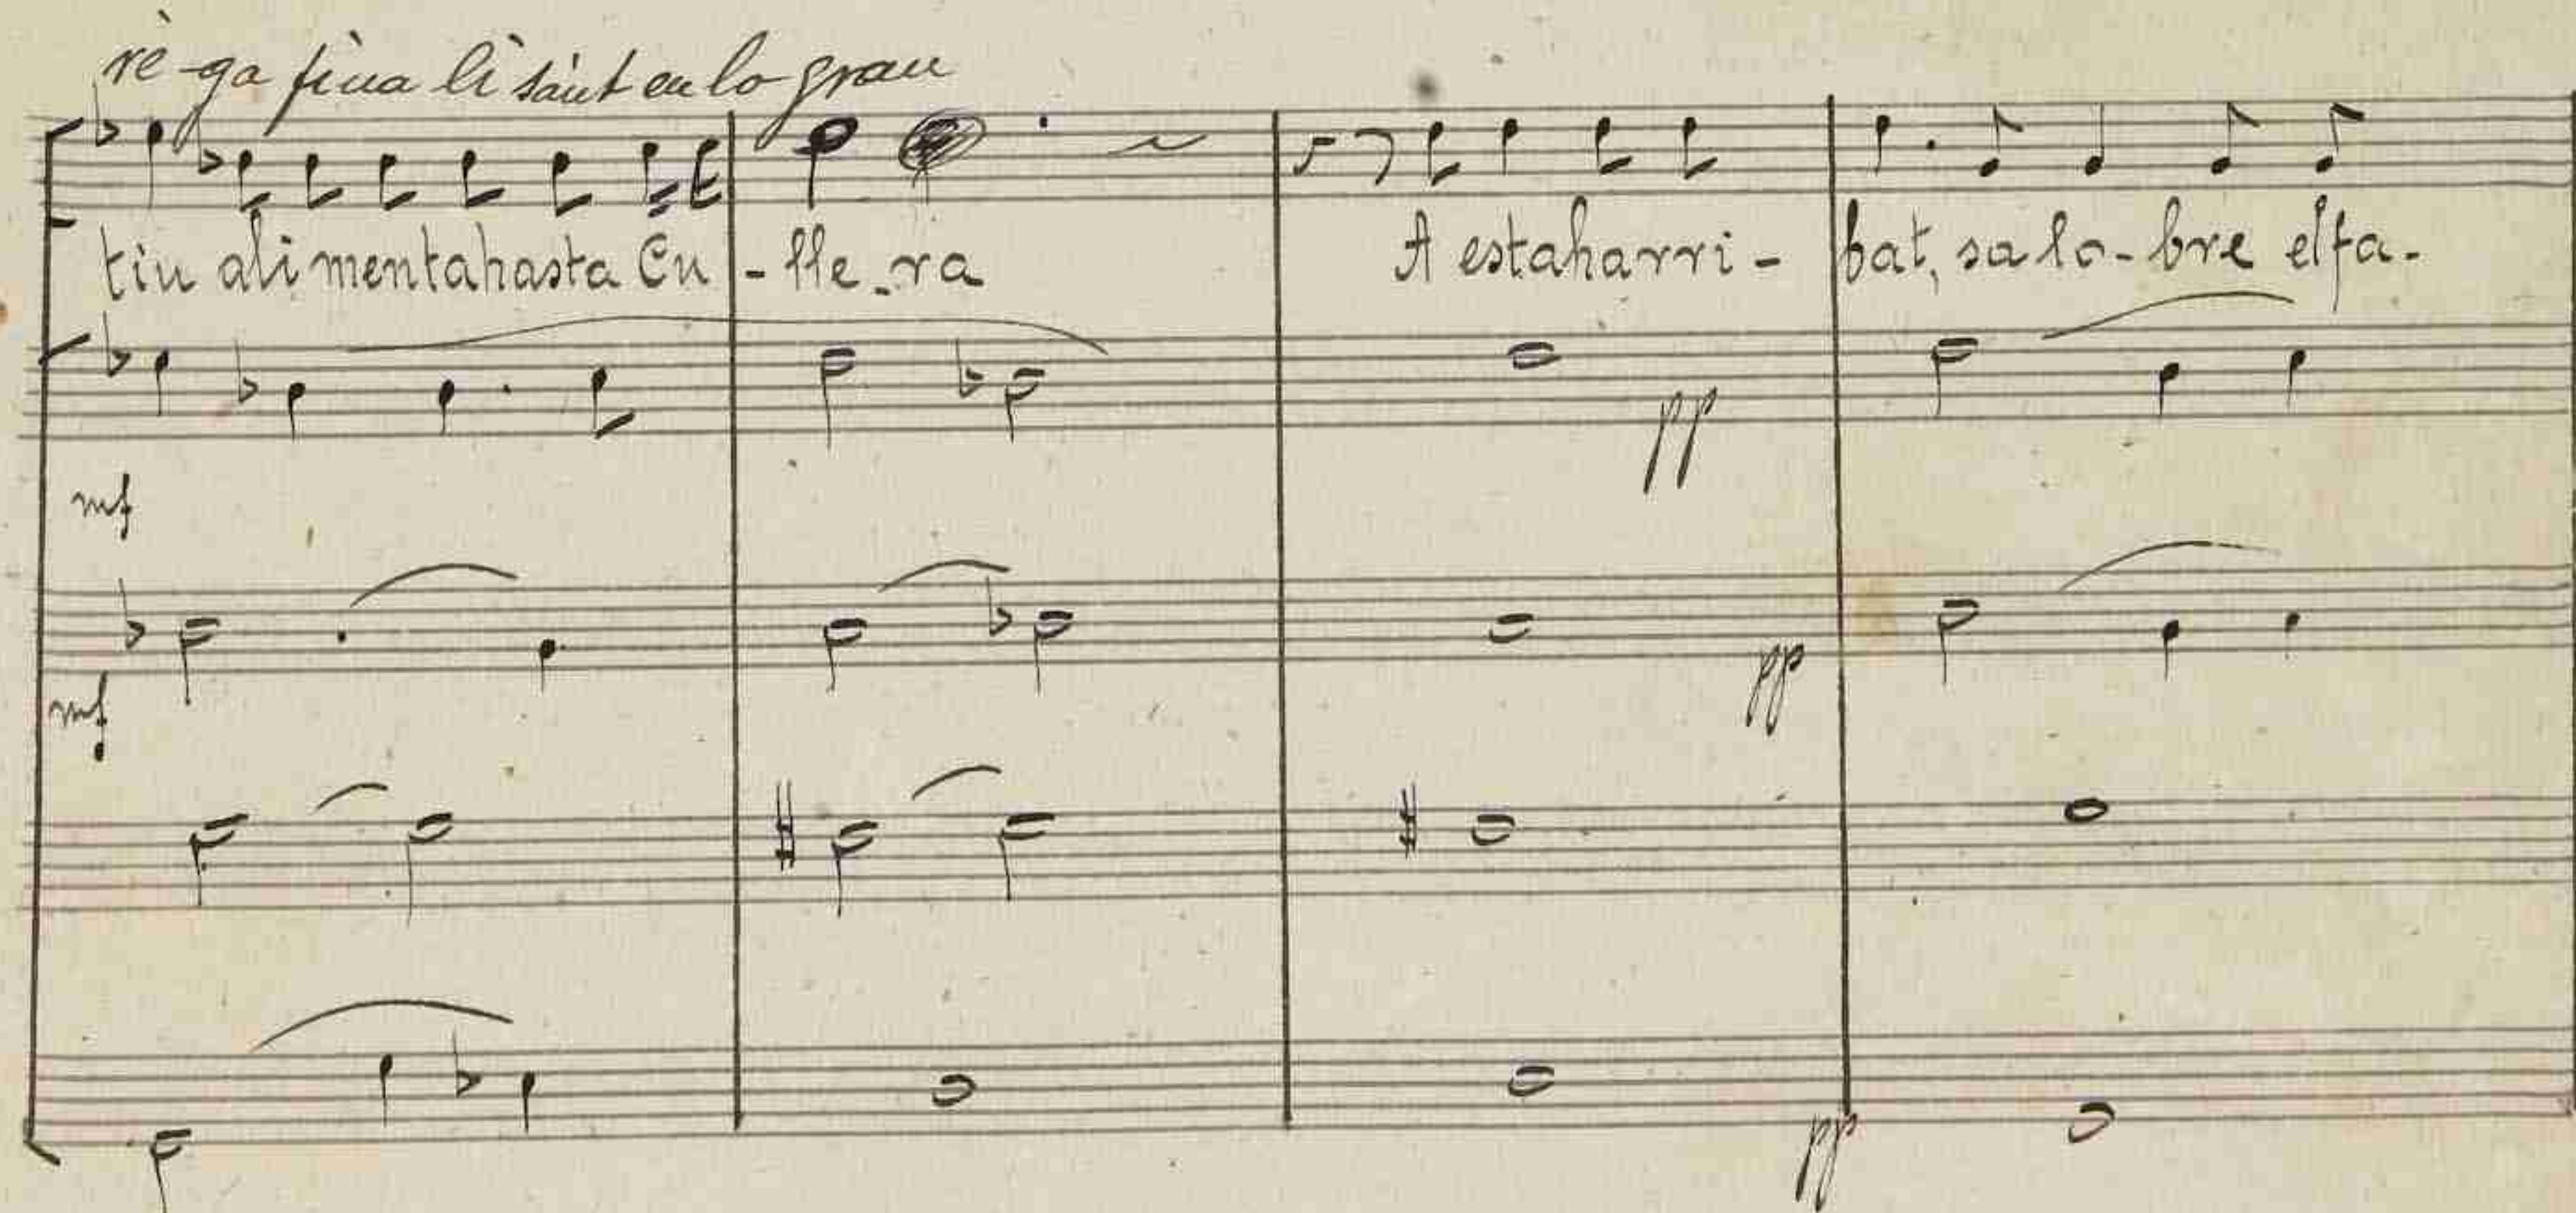 rè-ga fina li saint en lo grau
tiu alimentahasta Cu-lle-ra A estaharri-bat, salo-bre elfa-
pp
mf
pp
mf
pp